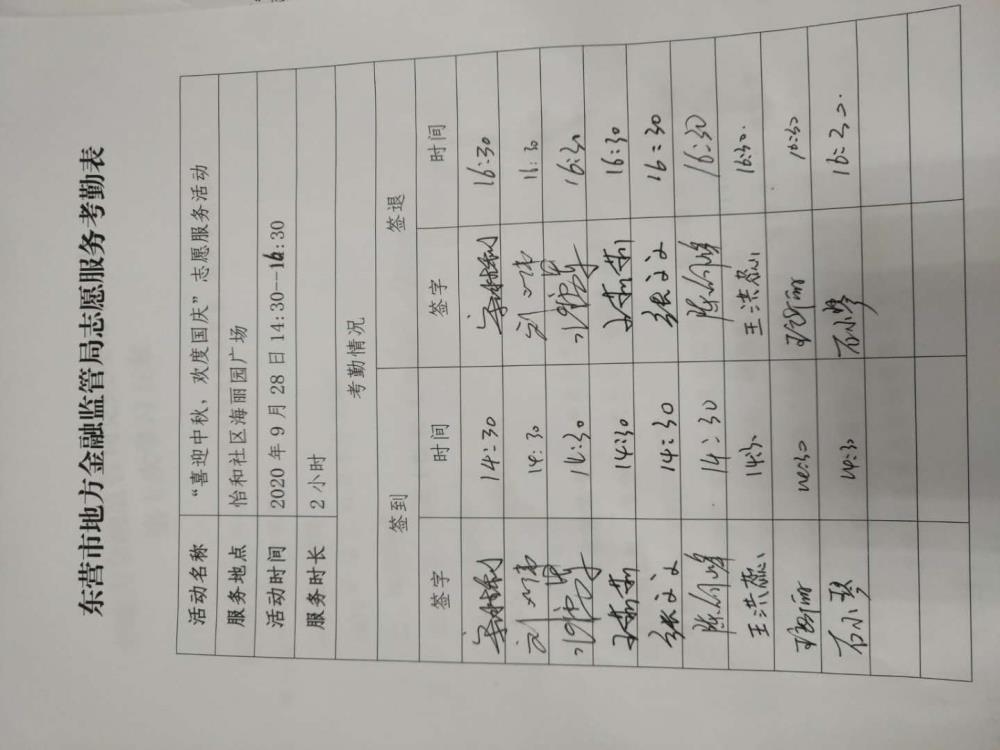 东营市地方金融监管局志愿服务考勤表
活动名称 “喜迎中秋，欢度国庆”志愿服务活动
服务地点 怡和社区海丽园广场
活动时间 2020年9月28日14:30--16:30
服务时长 2小时
考勤情况
签到 签退
签字 时间 签字 时间
14:30 16:30
14:30 16:30
14:30 16:30
14:30 16:30
张文文 14:30 张文文 16:30
14:30 16:30
王洪蕊 14:30 王洪蕊 16:30.
14:30 16:30
石小琴 14:30 石小琴 16:30.